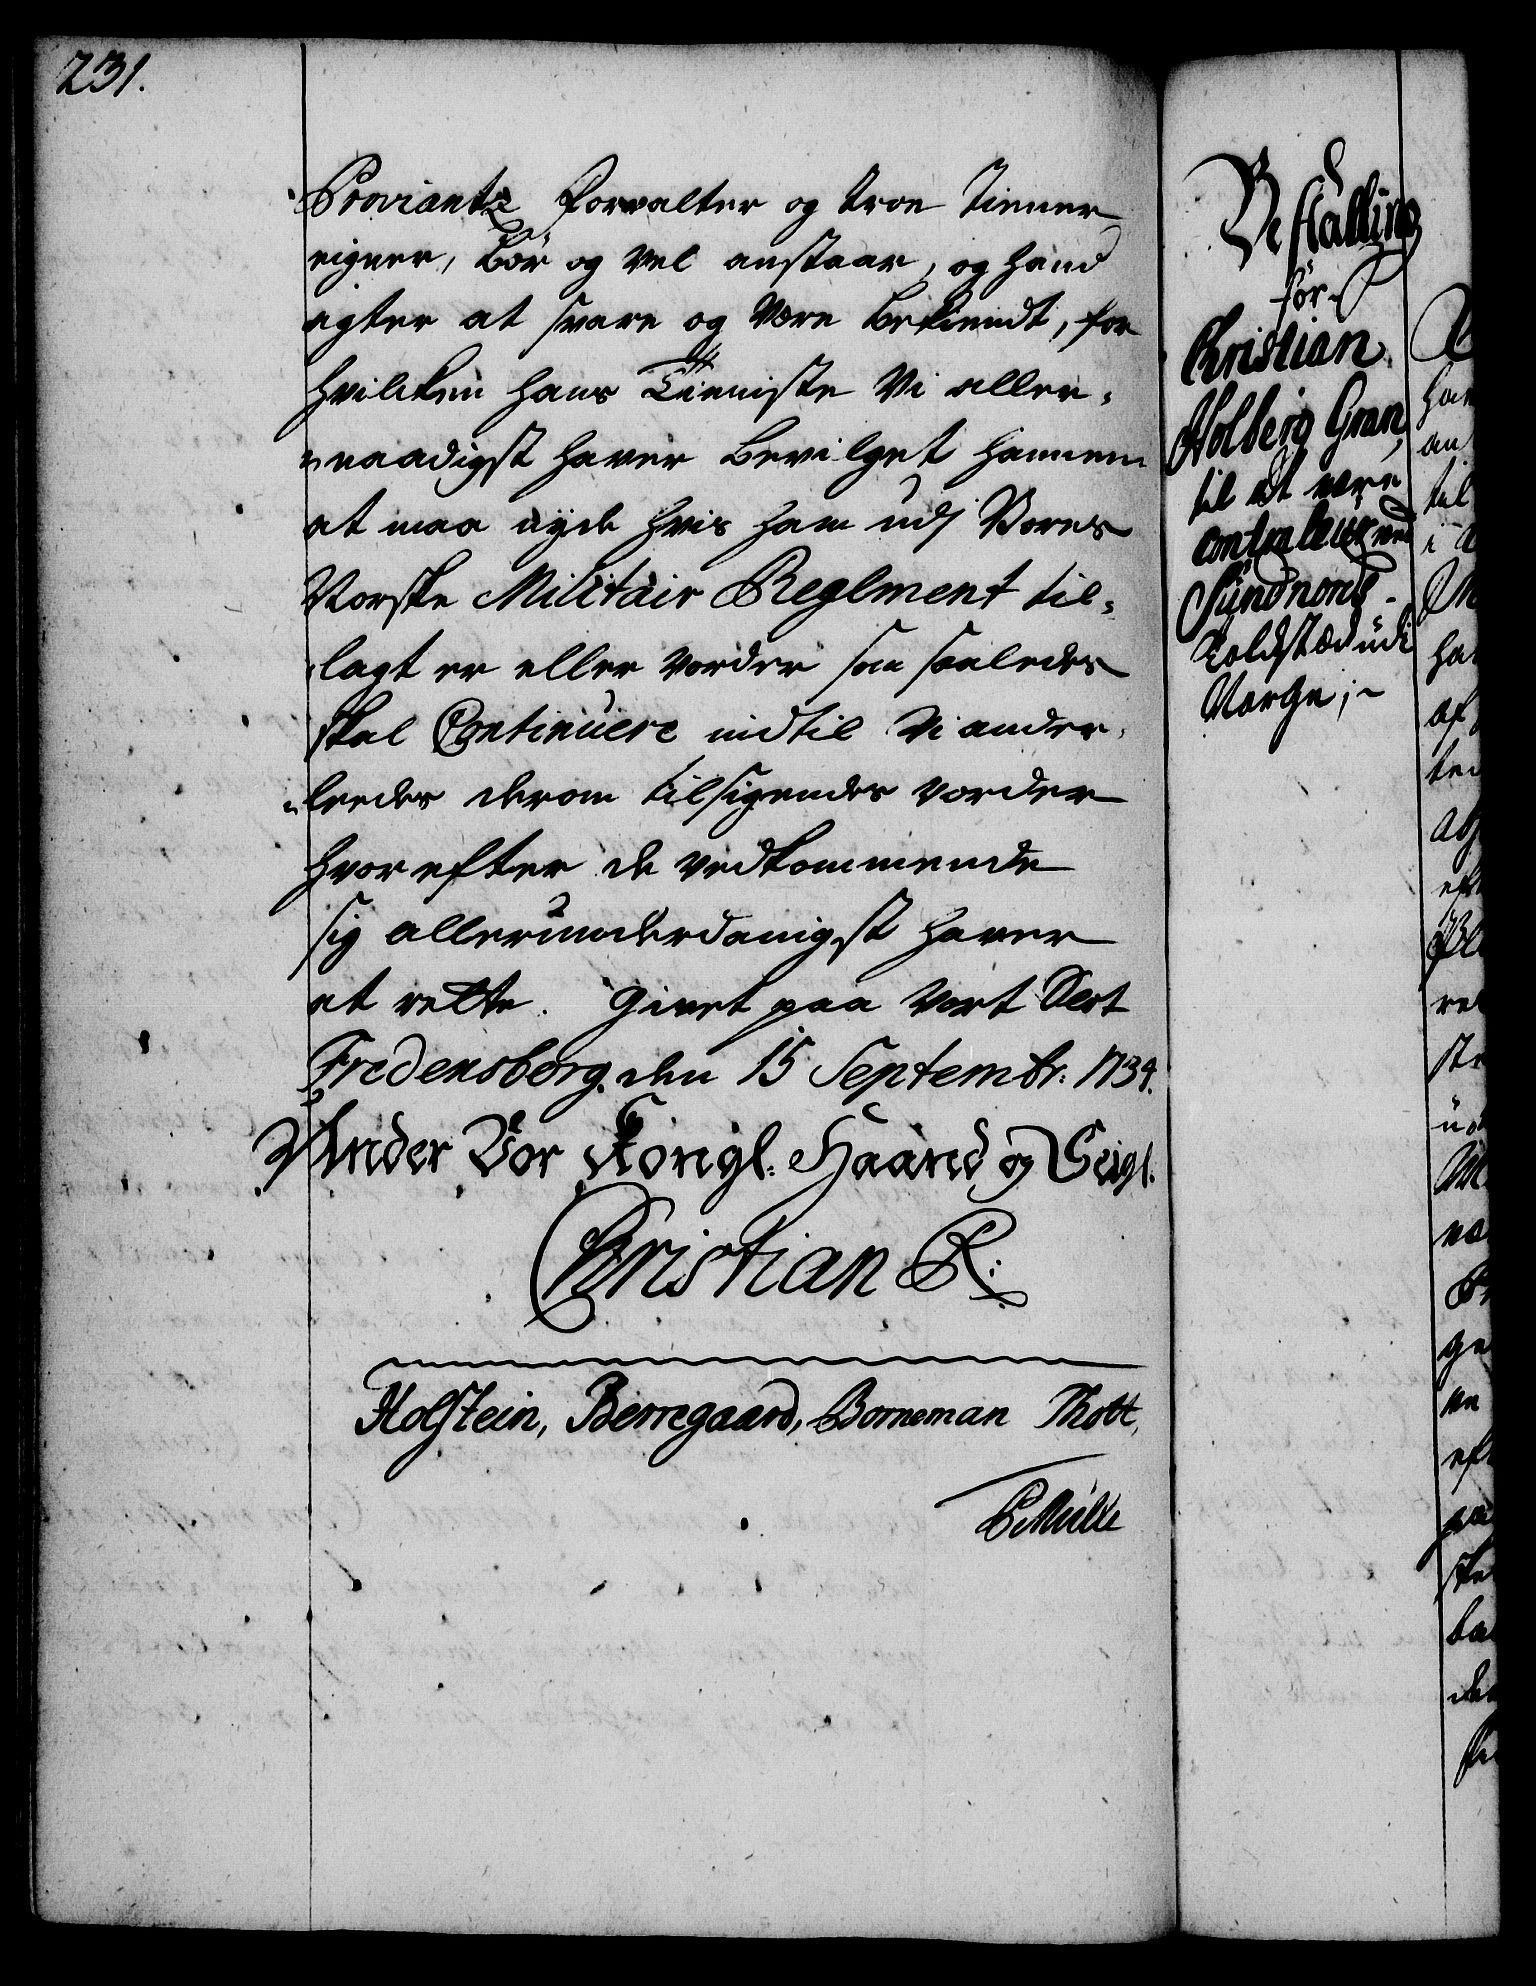 231.
Proviantz Forvalter og troe Tienner
eigner, bör og vel anstaar, og hand
agter at svare og være bekiendt, for
hvilcken hans Tienniste Vi aller-
naadigst haver bevilget hannem
at maa nyde hvis ham udj Vores
Norske Militair Reglment til-
lagt er eller vorder som saaledes
skal Continuere indtil Vi ander-
leedes derom tilsigendes vorder
hvorefter de vedkommende
sig allerunderdanigst haver
at rette. Givet paa Vort Slot
Fredensborg, den 15 Septembr: 1734.
Under Vor Kongl: Haand og Seigl.
Christian R:
Holstein, Berregaard, Borneman Thott,
Bestalling
for
Christian
Holberg Gran,
til at være
Controlleur ved
Sundnords
Toldsted udi
Norge;